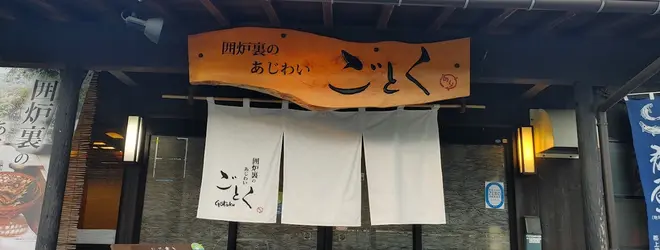 囲炉裏の
あじわい
ごとく
囲炉裏の
あじわい
ごとく
Gotoku
囲炉裏の
あ